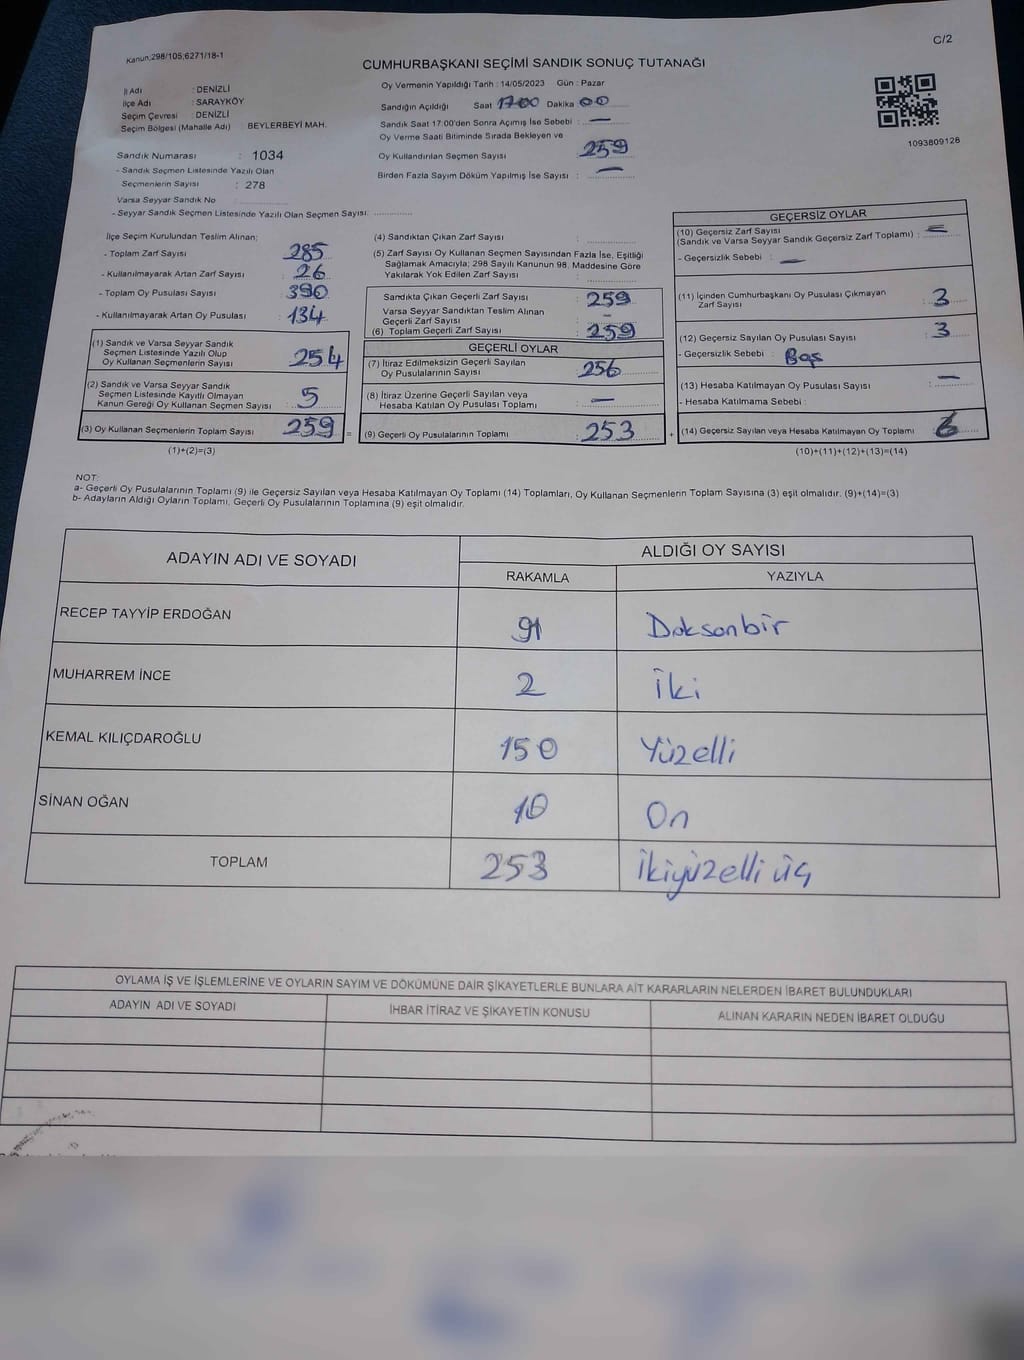 Kanun:298/105;6271/18-1
C/2
CUMHURBAŞKANI SEÇİMİ SANDIK SONUÇ TUTANAĞI
İl Adı : DENİZLİ
İlçe Adı : SARAYKÖY
Seçim Çevresi : DENİZLİ
Seçim Bölgesi (Mahalle Adı) BEYLERBEYİ MAH.
Oy Vermenin Yapıldığı Tarih : 14/05/2023 Gün : Pazar
Sandığın Açıldığı Saat 17:00 Dakika 00
Sandık Saat 17:00'den Sonra Açımış İse Sebebi : —
Oy Verme Saati Bitiminde Sırada Bekleyen ve
Oy Kullandırılan Seçmen Sayısı : 259
Birden Fazla Sayım Döküm Yapılmış İse Sayısı : —
1093809128
Sandık Numarası : 1034
- Sandık Seçmen Listesinde Yazılı Olan
Seçmenlerin Sayısı : 278
Varsa Seyyar Sandık No
- Seyyar Sandık Seçmen Listesinde Yazılı Olan Seçmen Sayısı:
İlçe Seçim Kurulundan Teslim Alınan;
- Toplam Zarf Sayısı : 285
- Kullanılmayarak Artan Zarf Sayısı : 26
- Toplam Oy Pusulası Sayısı : 390
- Kullanılmayarak Artan Oy Pusulası : 134
(1) Sandık ve Varsa Seyyar Sandık
Seçmen Listesinde Yazılı Olup
Oy Kullanan Seçmenlerin Sayısı : 254
(2) Sandık ve Varsa Seyyar Sandık
Seçmen Listesinde Kayıtlı Olmayan
Kanun Gereği Oy Kullanan Seçmen Sayısı : 5
(3) Oy Kullanan Seçmenlerin Toplam Sayısı : 259
(1)+(2)=(3)
(4) Sandıktan Çıkan Zarf Sayısı :
(5) Zarf Sayısı Oy Kullanan Seçmen Sayısından Fazla İse, Eşitliği
Sağlamak Amacıyla; 298 Sayılı Kanunun 98. Maddesine Göre
Yakılarak Yok Edilen Zarf Sayısı :
Sandıkta Çıkan Geçerli Zarf Sayısı : 259
Varsa Seyyar Sandıktan Teslim Alınan
Geçerli Zarf Sayısı : —
(6) Toplam Geçerli Zarf Sayısı : 259
GEÇERLİ OYLAR
(7) İtiraz Edilmeksizin Geçerli Sayılan
Oy Pusulalarının Sayısı : 256
(8) İtiraz Üzerine Geçerli Sayılan veya
Hesaba Katılan Oy Pusulası Toplamı : —
= (9) Geçerli Oy Pusulalarının Toplamı : 253 +
GEÇERSİZ OYLAR
(10) Geçersiz Zarf Sayısı
(Sandık ve Varsa Seyyar Sandık Geçersiz Zarf Toplamı) : —
- Geçersizlik Sebebi : —
(11) İçinden Cumhurbaşkanı Oy Pusulası Çıkmayan
Zarf Sayısı : 3
(12) Geçersiz Sayılan Oy Pusulası Sayısı : 3
- Geçersizlik Sebebi : Boş
(13) Hesaba Katılmayan Oy Pusulası Sayısı : —
- Hesaba Katılmama Sebebi :
(14) Geçersiz Sayılan veya Hesaba Katılmayan Oy Toplamı : 6
(10)+(11)+(12)+(13)=(14)
NOT:
a- Geçerli Oy Pusulalarının Toplamı (9) ile Geçersiz Sayılan veya Hesaba Katılmayan Oy Toplamı (14) Toplamları, Oy Kullanan Seçmenlerin Toplam Sayısına (3) eşit olmalıdır. (9)+(14)=(3)
b- Adayların Aldığı Oyların Toplamı, Geçerli Oy Pusulalarının Toplamına (9) eşit olmalıdır.
ADAYIN ADI VE SOYADI ALDIĞI OY SAYISI
RAKAMLA YAZIYLA
RECEP TAYYİP ERDOĞAN 91 Doksanbir
MUHARREM İNCE 2 İki
KEMAL KILIÇDAROĞLU 150 Yüzelli
SİNAN OĞAN 10 On
TOPLAM 253 İkiyüzelli üç
OYLAMA İŞ VE İŞLEMLERİNE VE OYLARIN SAYIM VE DÖKÜMÜNE DAİR ŞİKAYETLERLE BUNLARA AİT KARARLARIN NELERDEN İBARET BULUNDUKLARI
ADAYIN ADI VE SOYADI İHBAR İTİRAZ VE ŞİKAYETİN KONUSU ALINAN KARARIN NEDEN İBARET OLDUĞU